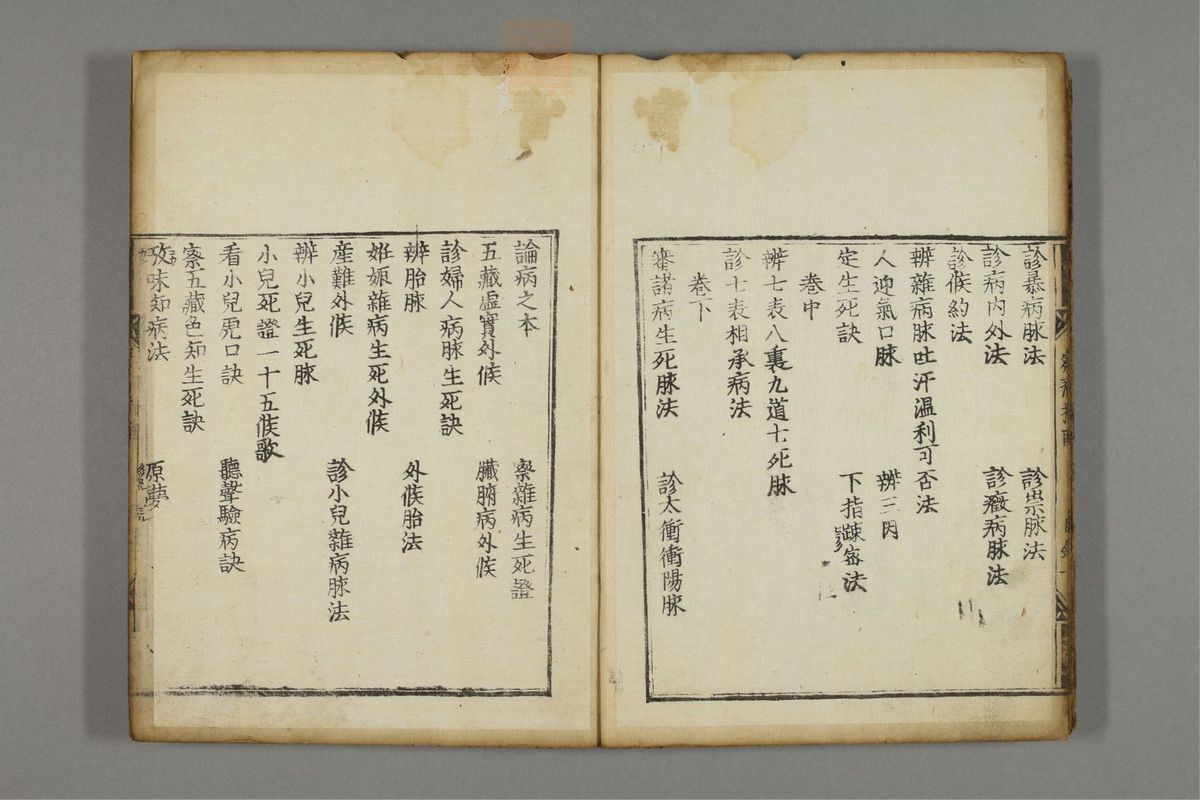 診暴病脉法　診祟脉法
診病内外法　診癥病脉法
診候約法
辨雜病脉吐汗温利可否法
人迎氣口脉　辨三因
定生死訣　下指踈宻法
巻中
辨七表八裏九道七死脉
診七表相承病法
巻下
審諸病生死脉法　診太衝衝陽脉
論病之本　察雜病生死證
五藏虚實外候　臓腑病外候
診婦人病脉生死訣
辨胎脉　外候胎法
姙娠雜病生死外候
産難外候　診小兒雜病脉法
辨小兒生死脉
小兒死證一十五候歌
看小兒虎口訣　聽聲驗病訣
察五藏色知生死訣
攷味知病法　原夢